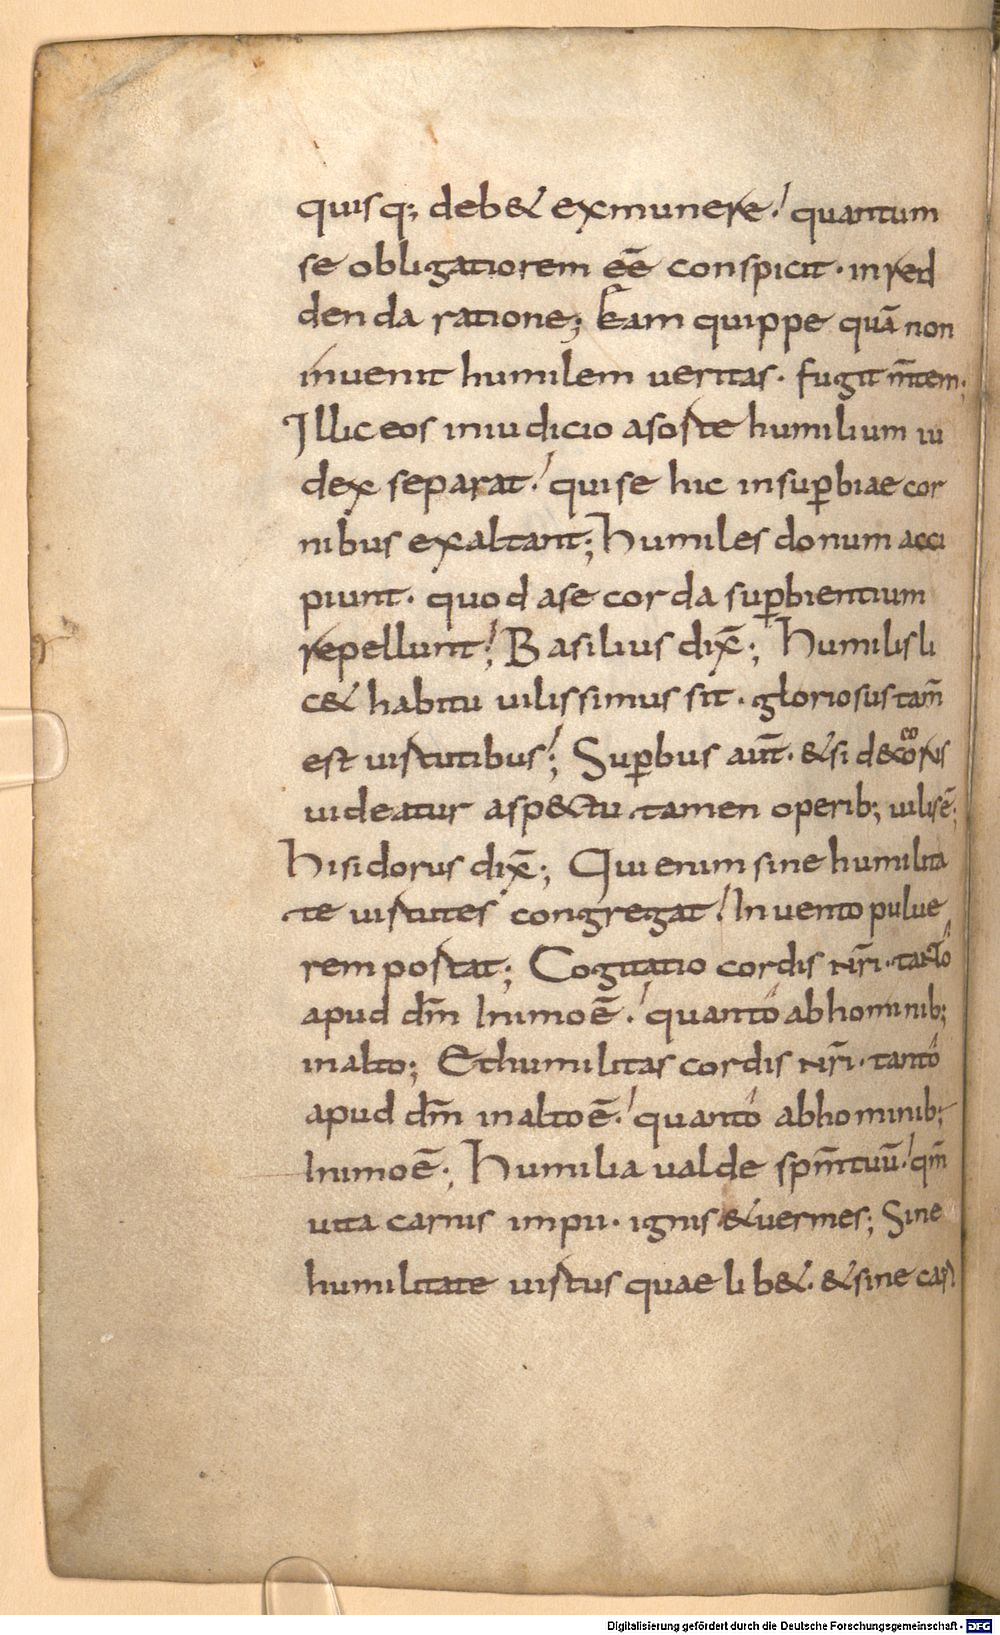 quisq; deb& exmunere. quantum
se obligatiorem eē conspicit · inred
denda ratione; Eam quippe quā non
inuenit humilem ueritas · fugit m̄tem;
Illic eos iniudicio asorte humilium iu
dex separat. quise hic insuꝑbiae cor
nibus exaltant; Humiles donum acci
piunt · quod ase corda suꝑbientium
repellunt; Basilius dix̄; Humilis li
c& habitu uilissimus sit · gloriosus tam̄
est uirtutibus; Suꝑbus aut̄ · &si decorus
uideatur aspectu tamen operib; uilis ē;
Hisidorus dix̄; Qui enim sine humilita
te uirtutes congregat. In uento pulue
rem portat; Cogitatio cordis nr̄i · tanto
apud dm̄ Inimo ē. quanto abhominib;
inalto; Ethumilitas cordis nr̄i · tanto
apud dm̄ inalto ē. quanto abhominib;
Inimo ē; Humilia ualde spm̄ tuū. qm̄
uita carnis impii · ignis &uermes; Sine
humilitate uirtus quaelib& · &sine cari
Digitalisierung gefördert durch die Deutsche Forschungsgemeinschaft - DFG